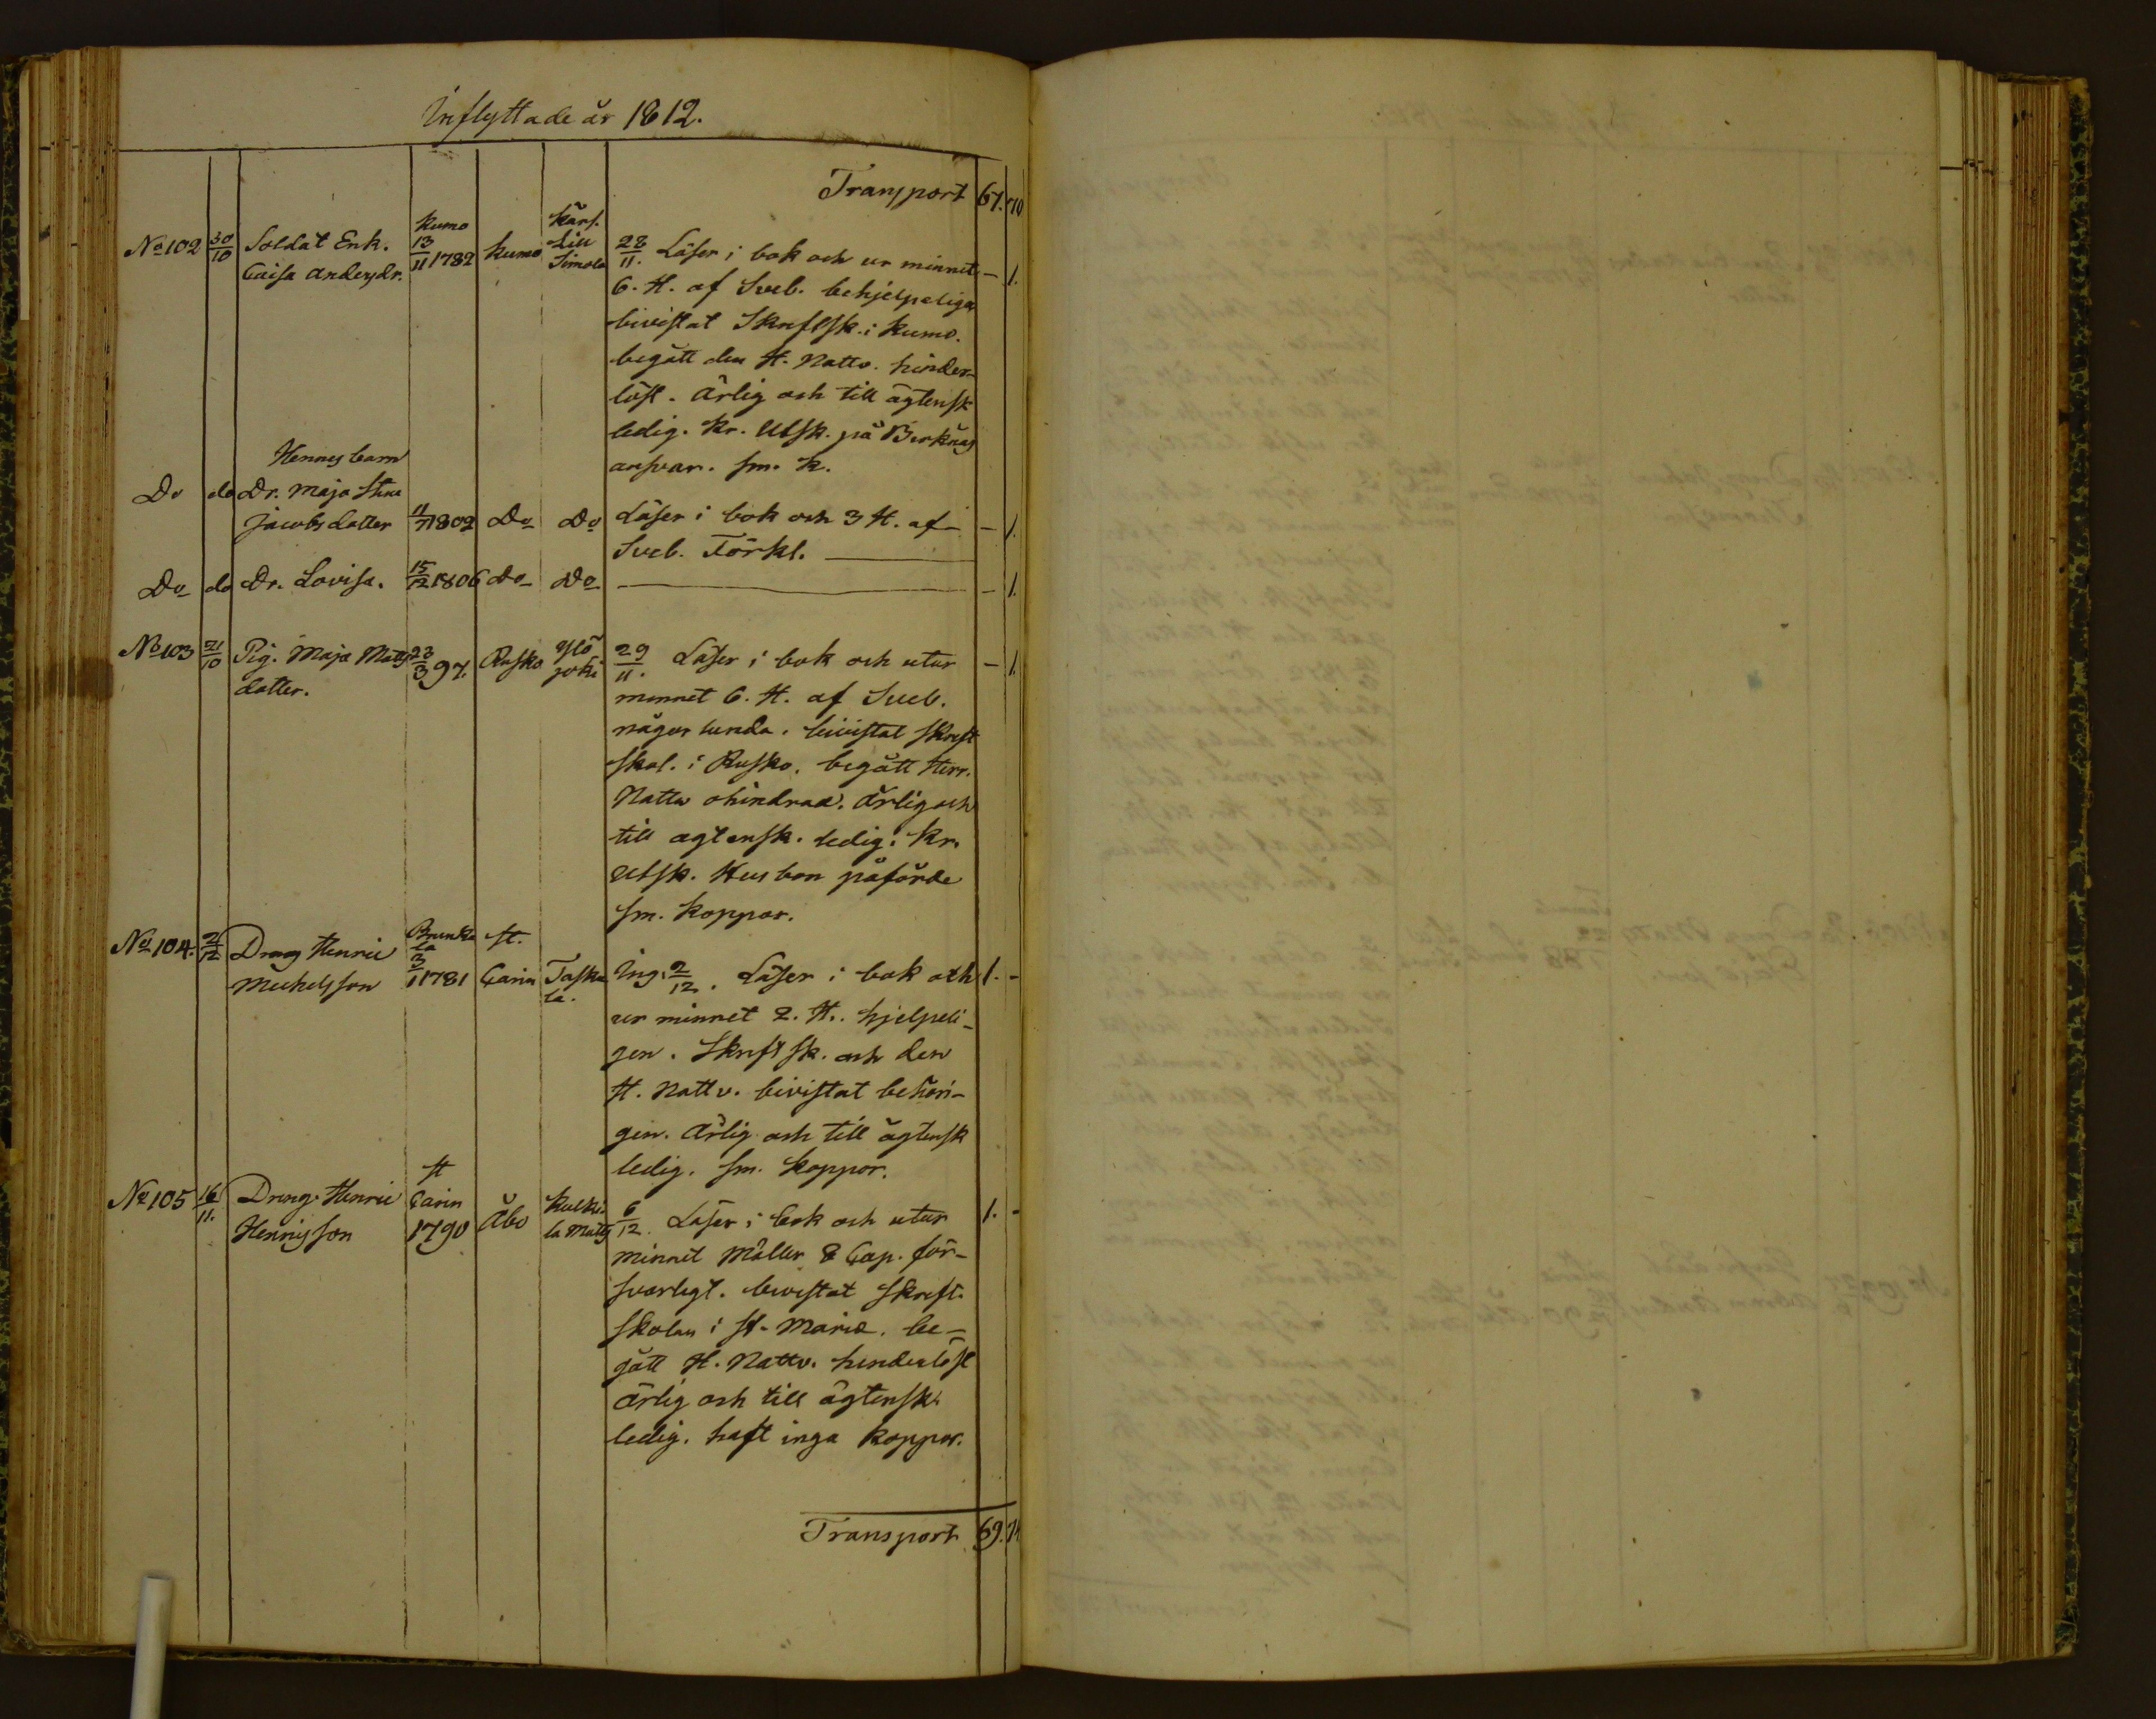 Inflyttade år 1812.
Transport 67. 70
No 102 30/10 Soldat Enk. Caisa Andersdr. Kumo 13/11 1782 Kumo Kärs. Lill Simola
28/11. Läser i bok och ur minnet - 1.
6. H. af Sveb. behjelpeliga
bivistat Skriftsk. i Kumo.
begått den H. Nattv. hinder-
löst. Ärlig och till ägtensk
ledig. Kr. Utsk. på
ansvar. sm. k.
Hennes barn
Do do Dr. Maja Stina
Jacobsdotter 11/7 1802 Do Do Läser i bok och 3 H. af - 1.
Sveb. Förkl.
Do do Dr. Lovisa. 15/12 1806 Do Do - 1.
No 103 21/10 Pig. Maja Matts dotter. 23/3 97. Rusko Ylö joki
29/11. Läser i bok och utur - 1.
minnet 6. H. af Sveb.
någorlunda. bivistat Skrift
skol. i Rusko. begått Herr.
Nattv ohindrad. ärlig och
till agtensk. ledig. Kr.
Utsk. Husbon påförde
sm. koppor.
No 104. 2/12 Dreng Henric Michelsson Brunkala 3/1 1781 St. Carin Taskala.
Ing. 2/12. Läser i bok och 1. -
ur minnet 2. H. hjelpeli-
gen. Skriftsk. och den
H. Nattv. bivistat behöri-
gen. Ärlig och till ägtensk
ledig. sm. koppor.
No 105 16/11. Dreng. Henric Henricsson St Carin 1790 Åbo Kulkila Matts
6/12. Läser i bok och utur 1. -
minnet Möller 8 Cap. för-
svarligt. bevistat Skrift-
skolan i St. Mariæ. be-
gått H. Nattv. hinderlöst
ärlig och till ägtensk.
ledig. haft inga koppor.
Transport 69. 74